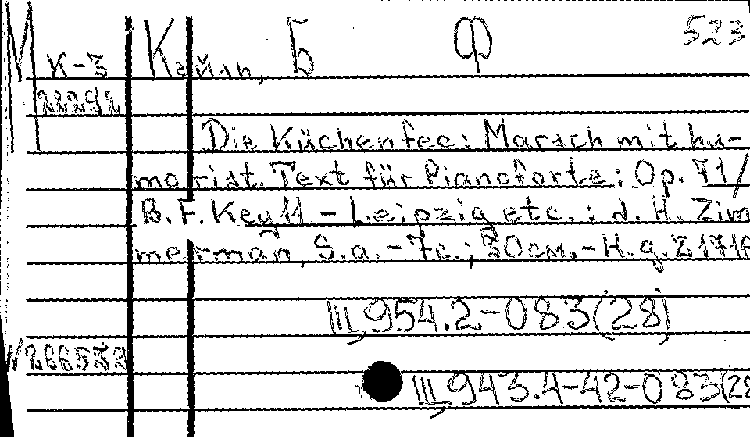 М к-3 Кейль, Б Ф 523
Die Küchenfee: Marsch mit hu-
morist. Text für Pianoforte; Op. 71/
B. F. Keull - Leipzig etc.: d. H. Zim
merman, S.a. - 7c.; 30см. - H. q. Z 1716
Ш,954.2-083(28)
Ш,943.4-42-083(28